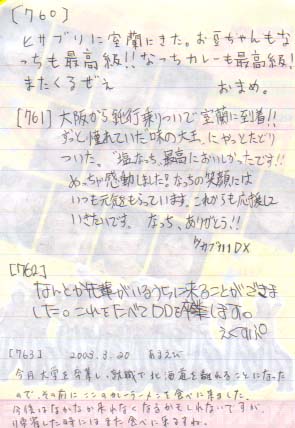 [760]
ヒサブリに室蘭にきた。お豆ちゃんもな
っちも最高級!!なっちカレーも最高級!
またくるぜぇ おまめ。
[761] 大阪から鈍行乗りついで室蘭に到着!!
ずっと憧れていた味の大王にやっとたどり
ついた。塩なっち最高においしかったです!!
めっちゃ感動しました!なっちの笑顔には
いつも元気をもらっています。これからも応援して
いきたいです。 なっち、ありがとう!!
DX
[762]
なんとか先輩がいるうちに来ることができま
した。これをたべてDDを卒業します。
[763] 2003.3.20 あまえび
今月大学を卒業し、就職で北海道を離れることになった
ので、その前にここのカレーラーメンを食べに来ました。
今後はなかなか来れなくなるかもしれないですが、
帰省した時にはまた食べに来ますね。